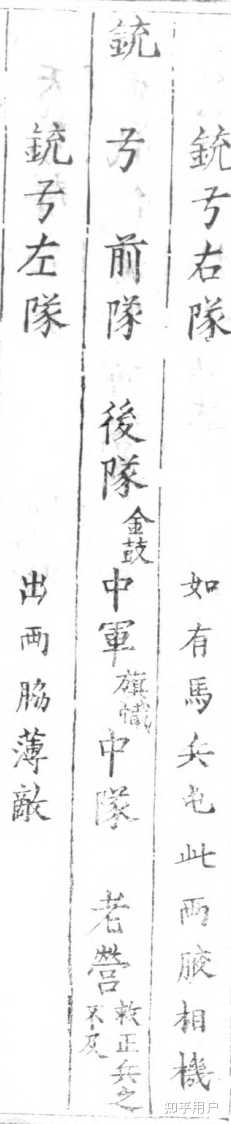 銃弓右隊 如有馬兵屯此兩腋相機
銃弓前隊 後隊 金鼓 中軍 旗幟 中隊 老營 救正兵之不及
銃弓左隊 出兩脇薄敵
知乎用户